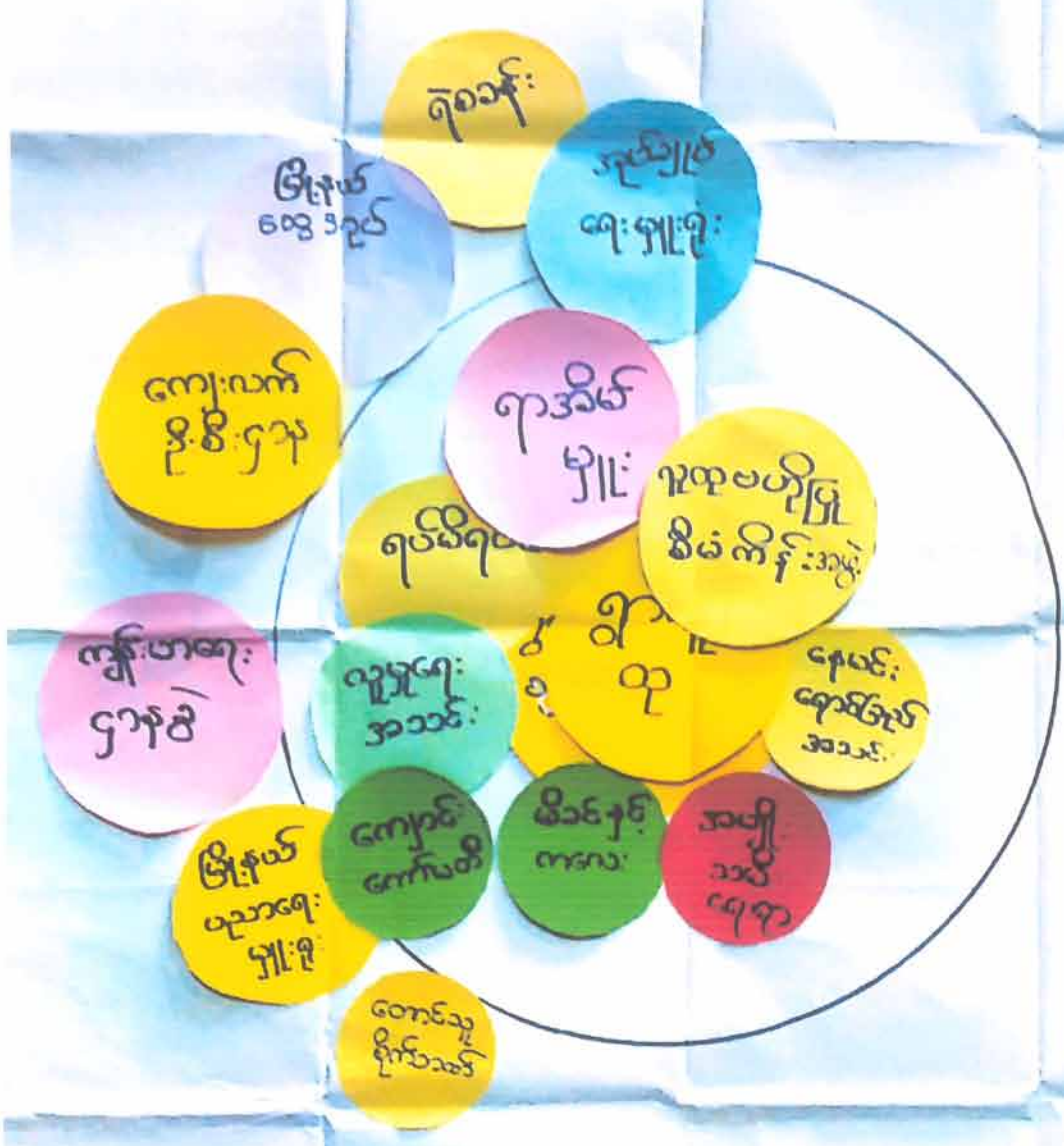 ရဲစခန်း
မြို့နယ်
ထွေ/အုပ်
အုပ်ချုပ်
ရေးမှူးရုံး
ကျေးလက်
ဦးစီးဌာန
ရာအိမ်
မှူး
လူထုဗဟိုပြု
စီမံကိန်းအဖွဲ့
ရပ်မိရပ်
ကျန်းမာရေး
ဌာနခွဲ
လူမှုရေး
အသင်း
ရွာ
ထု
နေမင်း
ရောင်ခြည်
အသင်း
မြို့နယ်
ပညာရေး
မှူးရုံး
ကျောင်း
ကော်မတီ
မိခင်နှင့်
ကလေး
အမျိုး
သမီး
ရေးရာ
တောင်သူ
စိုက်ပျိုး